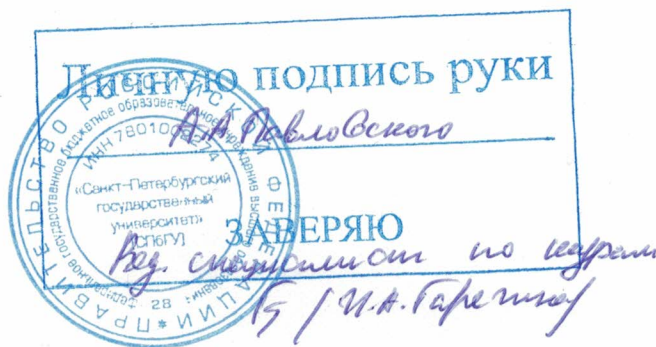 Личную подпись руки
А.А. Павловского
ЗАВЕРЯЮ
Вед. специалист по кадрам
/ И.А.
ПРАВИТЕЛЬСТВО РОССИЙСКОЙ ФЕДЕРАЦИИ *
федеральное государственное бюджетное образовательное учреждение высшего
ИНН 7801
«Санкт-Петербургский
государственный
университет»
(СПбГУ)
* 28 *